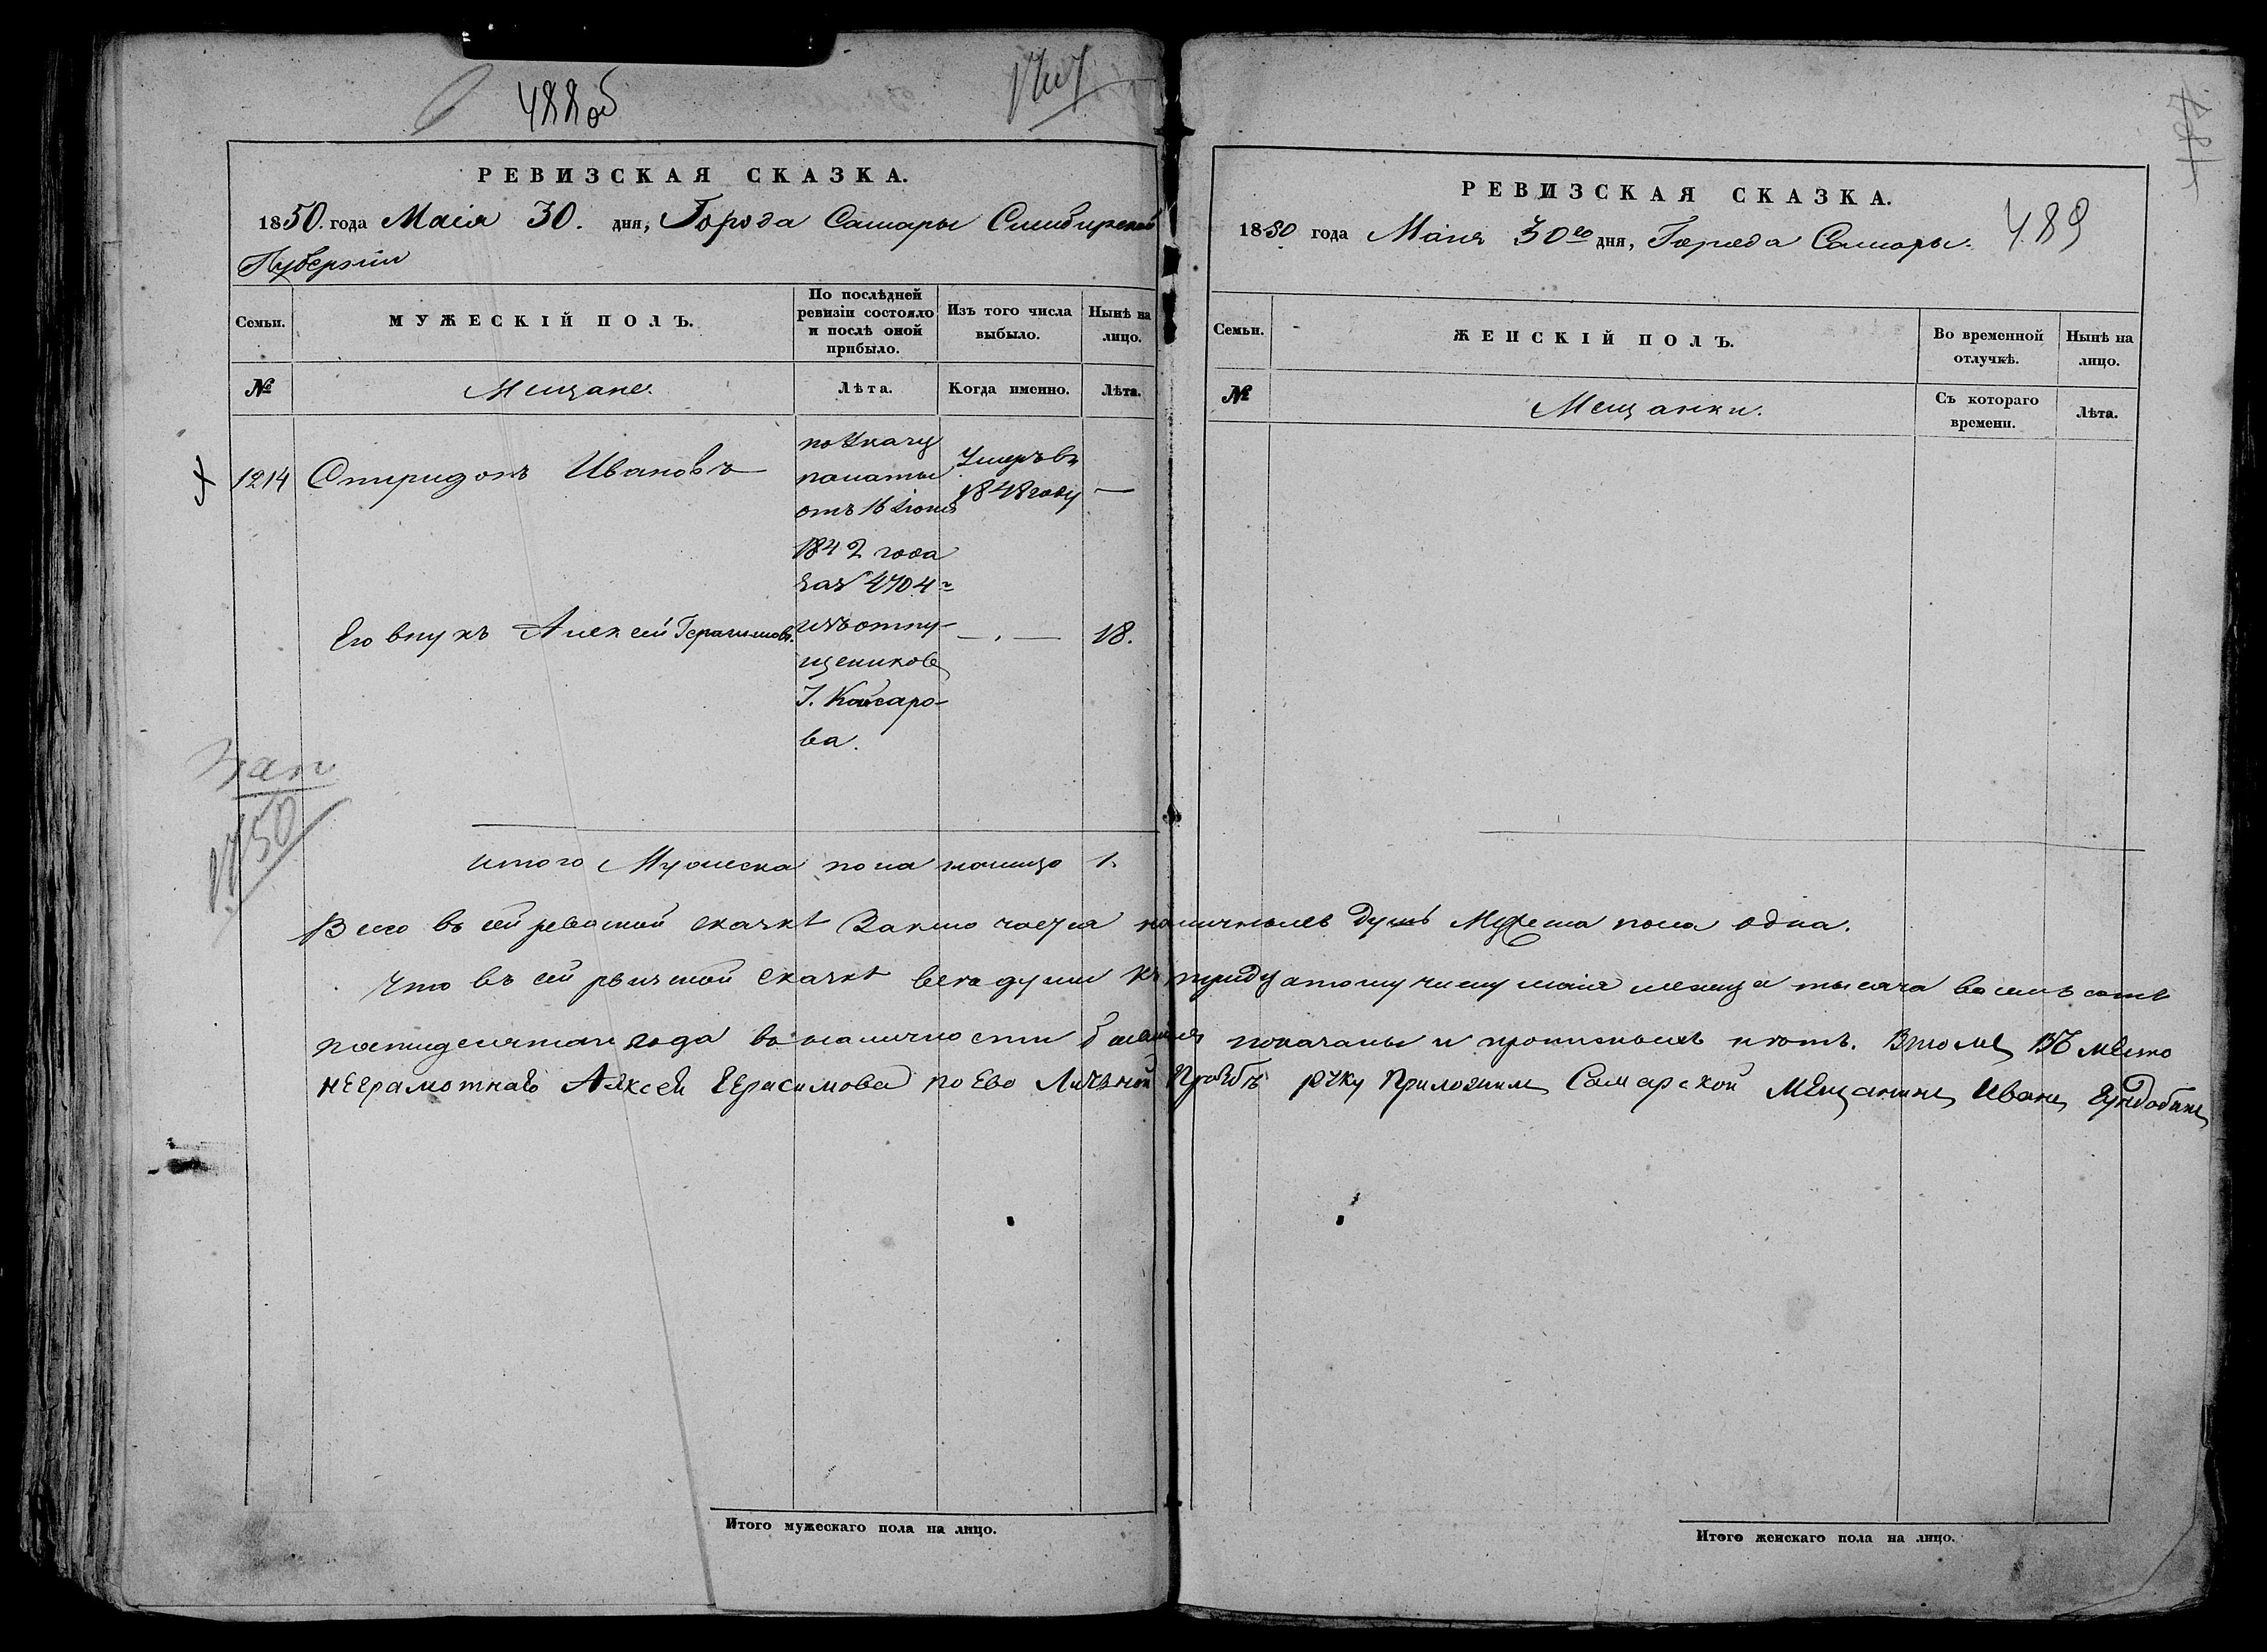 488об
РЕВИЗСКАЯ СКАЗКА.
1850. года Маія 30. дня, Города Самары Симбирской
Губерніи
Семьи.
МУЖЕСКІЙ ПОЛЪ.
По послѣдней
ревизіи состояло
и послѣ оной
прибыло.
Изъ того числа
выбыло.
Нынѣ на
лицо.
№
Мещане.
Лѣта.
Когда именно.
Лѣта.
1214 Спиридонъ Ивановъ
по Указу
палаты
отъ 16 Іюня
1842 года
за № 4704
изъ отпу-
щениковъ
Г. Кайсаро-
ва.
Умеръ въ
1848 году
—
Его внукъ Алексей Герасимовъ.
— . —
18.
1750
итого Мужеска пола налицо 1.
Всего въ сей скаскѣ наличныхъ душъ Мужеска пола одна.
Что въ сей скаскѣ все души къ тридцатому числу маія месяца тысяча восемь сотъ
года въ наличности показаны и прописныхъ нѣтъ. Въ томъ Въ место
неграмотнаго Алексей Герасимова по Ево Личьной Прозбѣ руку Приложилъ Самарской Мещанинъ Иванъ
Итого мужескаго пола на лицо.
РЕВИЗСКАЯ СКАЗКА.
489
1850 года Маія 30го дня, Города Самары.
Семьи.
ЖЕНСКІЙ ПОЛЪ.
Во временной
отлучкѣ.
Нынѣ на
лицо.
№
Мещанки.
Съ котораго
времени.
Лѣта.
Итого женскаго пола на лицо.